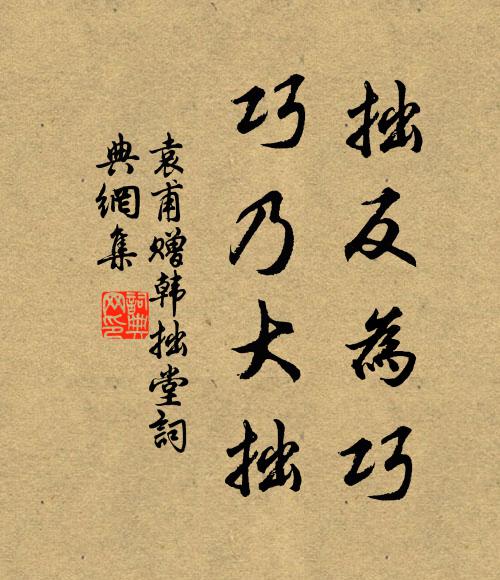 拙反為巧
巧乃大拙
袁甫赠韩拙堂詞
典網集
詞典
网印